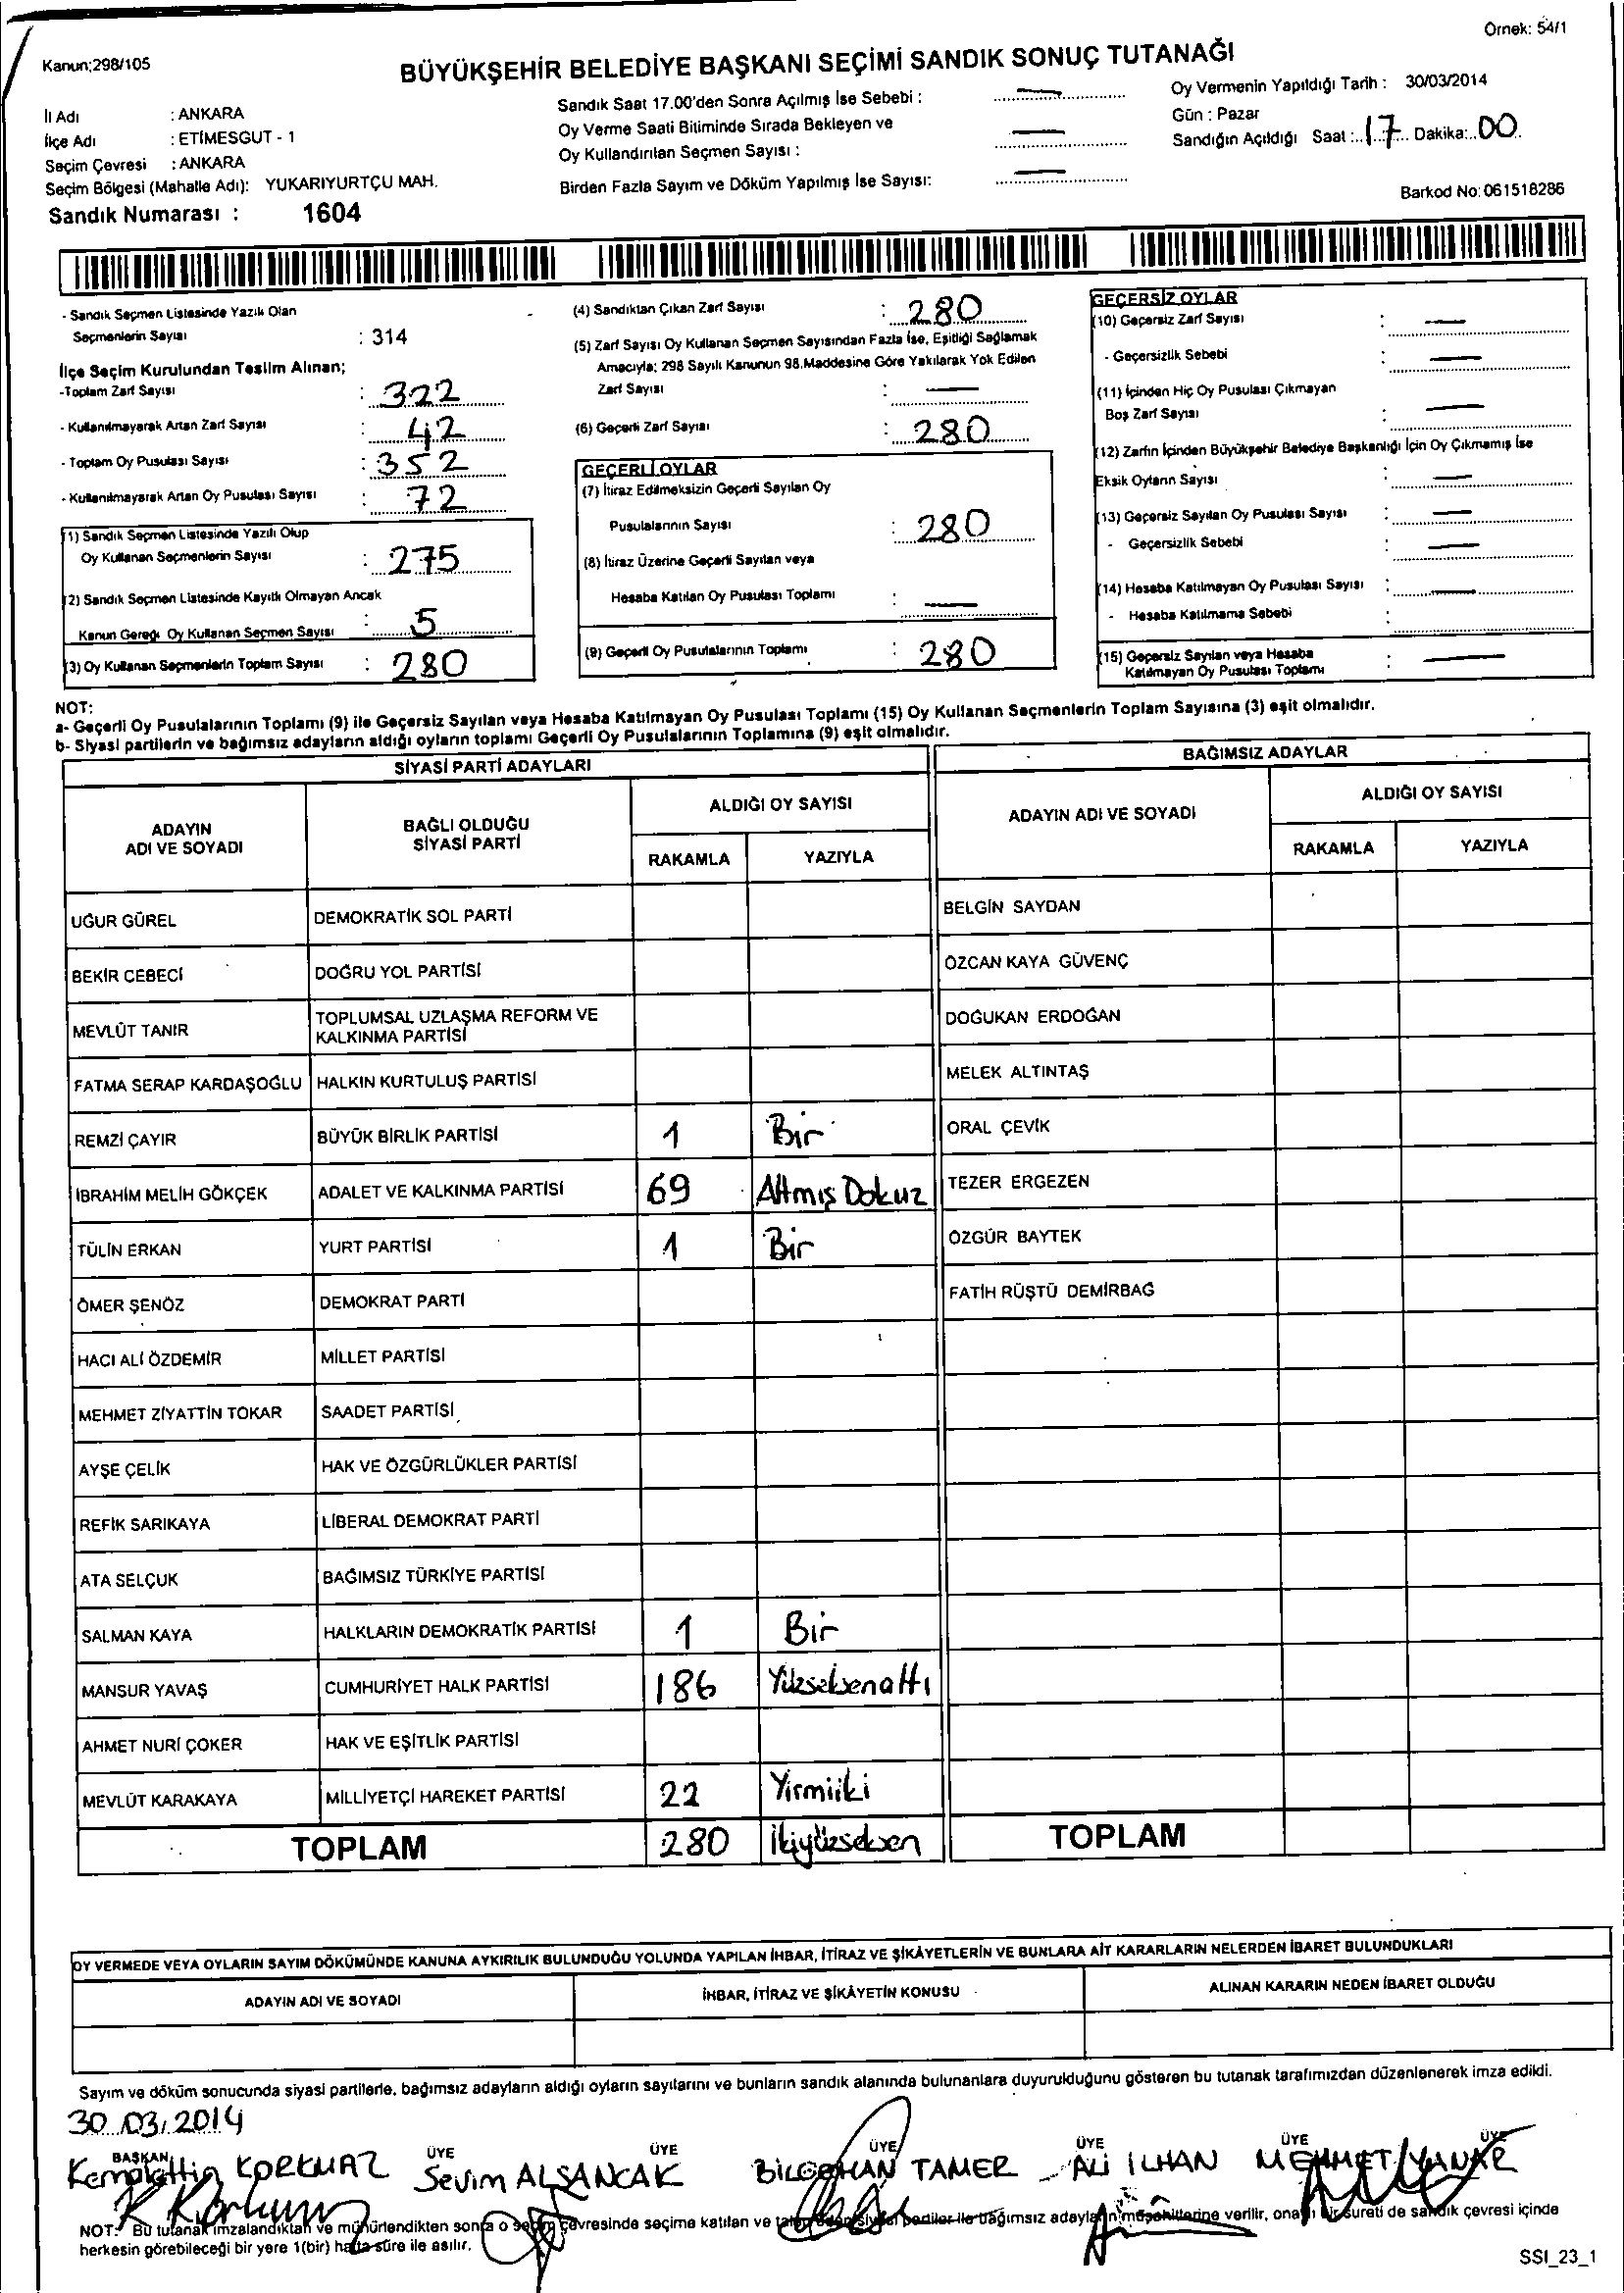 Örnek: 54/1
Kanun;298/105
BÜYÜKŞEHİR BELEDİYE BAŞKANI SEÇİMİ SANDIK SONUÇ TUTANAĞI
İl Adı : ANKARA
İlçe Adı : ETİMESGUT - 1
Seçim Çevresi : ANKARA
Seçim Bölgesi (Mahalle Adı): YUKARIYURTÇU MAH.
Sandık Numarası : 1604
Sandık Saat 17.00'den Sonra Açılmış İse Sebebi : —
Oy Verme Saati Bitiminde Sırada Bekleyen ve
Oy Kullandırılan Seçmen Sayısı : —
Birden Fazla Sayım ve Döküm Yapılmış İse Sayısı: —
Oy Vermenin Yapıldığı Tarih : 30/03/2014
Gün : Pazar
Sandığın Açıldığı Saat :..17.. Dakika:..00..
Barkod No: 061518286
- Sandık Seçmen Listesinde Yazılı Olan
Seçmenlerin Sayısı : 314
İlçe Seçim Kurulundan Teslim Alınan;
-Toplam Zarf Sayısı : 322
- Kullanılmayarak Artan Zarf Sayısı : 42
- Toplam Oy Pusulası Sayısı : 352
- Kullanılmayarak Artan Oy Pusulası Sayısı : 72
(1) Sandık Seçmen Listesinde Yazılı Olup
Oy Kullanan Seçmenlerin Sayısı : 275
(2) Sandık Seçmen Listesinde Kayıtlı Olmayan Ancak
Kanun Gereği Oy Kullanan Seçmen Sayısı : 5
(3) Oy Kullanan Seçmenlerin Toplam Sayısı : 280
(4) Sandıktan Çıkan Zarf Sayısı : 280
(5) Zarf Sayısı Oy Kullanan Seçmen Sayısından Fazla İse, Eşitliği Sağlamak
Amacıyla; 298 Sayılı Kanunun 98.Maddesine Göre Yakılarak Yok Edilen
Zarf Sayısı : —
(6) Geçerli Zarf Sayısı : 280
GEÇERLİ OYLAR
(7) İtiraz Edilmeksizin Geçerli Sayılan Oy
Pusulalarının Sayısı : 280
(8) İtiraz Üzerine Geçerli Sayılan veya
Hesaba Katılan Oy Pusulası Toplamı : —
(9) Geçerli Oy Pusulalarının Toplamı : 280
GEÇERSİZ OYLAR
(10) Geçersiz Zarf Sayısı : —
- Geçersizlik Sebebi : —
(11) İçinden Hiç Oy Pusulası Çıkmayan
Boş Zarf Sayısı : —
(12) Zarfın İçinden Büyükşehir Belediye Başkanlığı İçin Oy Çıkmamış İse
Eksik Oyların Sayısı : —
(13) Geçersiz Sayılan Oy Pusulası Sayısı : —
- Geçersizlik Sebebi : —
(14) Hesaba Katılmayan Oy Pusulası Sayısı : —
- Hesaba Katılmama Sebebi :
(15) Geçersiz Sayılan veya Hesaba
Katılmayan Oy Pusulası Toplamı : —
NOT:
a- Geçerli Oy Pusulalarının Toplamı (9) ile Geçersiz Sayılan veya Hesaba Katılmayan Oy Pusulası Toplamı (15) Oy Kullanan Seçmenlerin Toplam Sayısına (3) eşit olmalıdır.
b- Siyasi partilerin ve bağımsız adayların aldığı oyların toplamı Geçerli Oy Pusulalarının Toplamına (9) eşit olmalıdır.
SİYASİ PARTİ ADAYLARI
ADAYIN ADI VE SOYADI
BAĞLI OLDUĞU SİYASİ PARTİ
ALDIĞI OY SAYISI
RAKAMLA YAZIYLA
UĞUR GÜREL DEMOKRATİK SOL PARTİ
BEKİR CEBECİ DOĞRU YOL PARTİSİ
MEVLÜT TANIR TOPLUMSAL UZLAŞMA REFORM VE
KALKINMA PARTİSİ
FATMA SERAP KARDAŞOĞLU HALKIN KURTULUŞ PARTİSİ
REMZİ ÇAYIR BÜYÜK BİRLİK PARTİSİ 1 Bir
İBRAHİM MELİH GÖKÇEK ADALET VE KALKINMA PARTİSİ 69 Altmış Dokuz
TÜLİN ERKAN YURT PARTİSİ 1 Bir
ÖMER ŞENÖZ DEMOKRAT PARTİ
HACI ALİ ÖZDEMİR MİLLET PARTİSİ
MEHMET ZİYATTİN TOKAR SAADET PARTİSİ
AYŞE ÇELİK HAK VE ÖZGÜRLÜKLER PARTİSİ
REFİK SARIKAYA LİBERAL DEMOKRAT PARTİ
ATA SELÇUK BAĞIMSIZ TÜRKİYE PARTİSİ
SALMAN KAYA HALKLARIN DEMOKRATİK PARTİSİ 1 Bir
MANSUR YAVAŞ CUMHURİYET HALK PARTİSİ 186 Yüzseksenaltı
AHMET NURİ ÇOKER HAK VE EŞİTLİK PARTİSİ
MEVLÜT KARAKAYA MİLLİYETÇİ HAREKET PARTİSİ 22 Yirmiiki
TOPLAM 280 İkiyüzseksen
BAĞIMSIZ ADAYLAR
ADAYIN ADI VE SOYADI
ALDIĞI OY SAYISI
RAKAMLA YAZIYLA
BELGİN SAYDAN
ÖZCAN KAYA GÜVENÇ
DOĞUKAN ERDOĞAN
MELEK ALTINTAŞ
ORAL ÇEVİK
TEZER ERGEZEN
ÖZGÜR BAYTEK
FATİH RÜŞTÜ DEMİRBAĞ
TOPLAM
OY VERMEDE VEYA OYLARIN SAYIM DÖKÜMÜNDE KANUNA AYKIRILIK BULUNDUĞU YOLUNDA YAPILAN İHBAR, İTİRAZ VE ŞİKÂYETLERİN VE BUNLARA AİT KARARLARIN NELERDEN İBARET BULUNDUKLARI
ADAYIN ADI VE SOYADI İHBAR, İTİRAZ VE ŞİKÂYETİN KONUSU ALINAN KARARIN NEDEN İBARET OLDUĞU
Sayım ve döküm sonucunda siyasi partilerle, bağımsız adayların aldığı oyların sayılarını ve bunların sandık alanında bulunanlara duyurulduğunu gösteren bu tutanak tarafımızdan düzenlenerek imza edildi.
30.03.2014
BAŞKAN ÜYE ÜYE ÜYE ÜYE ÜYE ÜYE
Kemalettin KORKMAZ Sevim ALSANCAK BİLGEHAN TAMER ALİ İLHAN MEHMET YANAR
K Korkmaz
NOT: Bu tutanak imzalandıktan ve mühürlendikten sonra o seçim çevresinde seçime katılan ve talep eden siyasi partiler ile bağımsız adayların müşahitlerine verilir, onaylı bir sureti de sandık çevresi içinde
herkesin görebileceği bir yere 1(bir) hafta süre ile asılır.
SSI_23_1